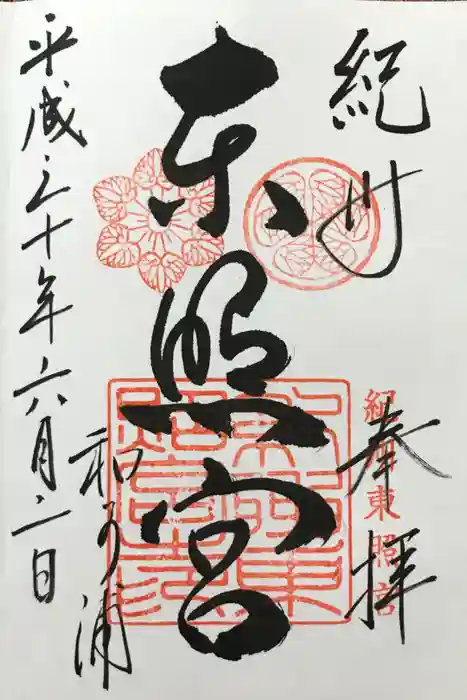 紀州
奉拝
紀州東照宮
東照宮
和可浦
平成三十年六月二日